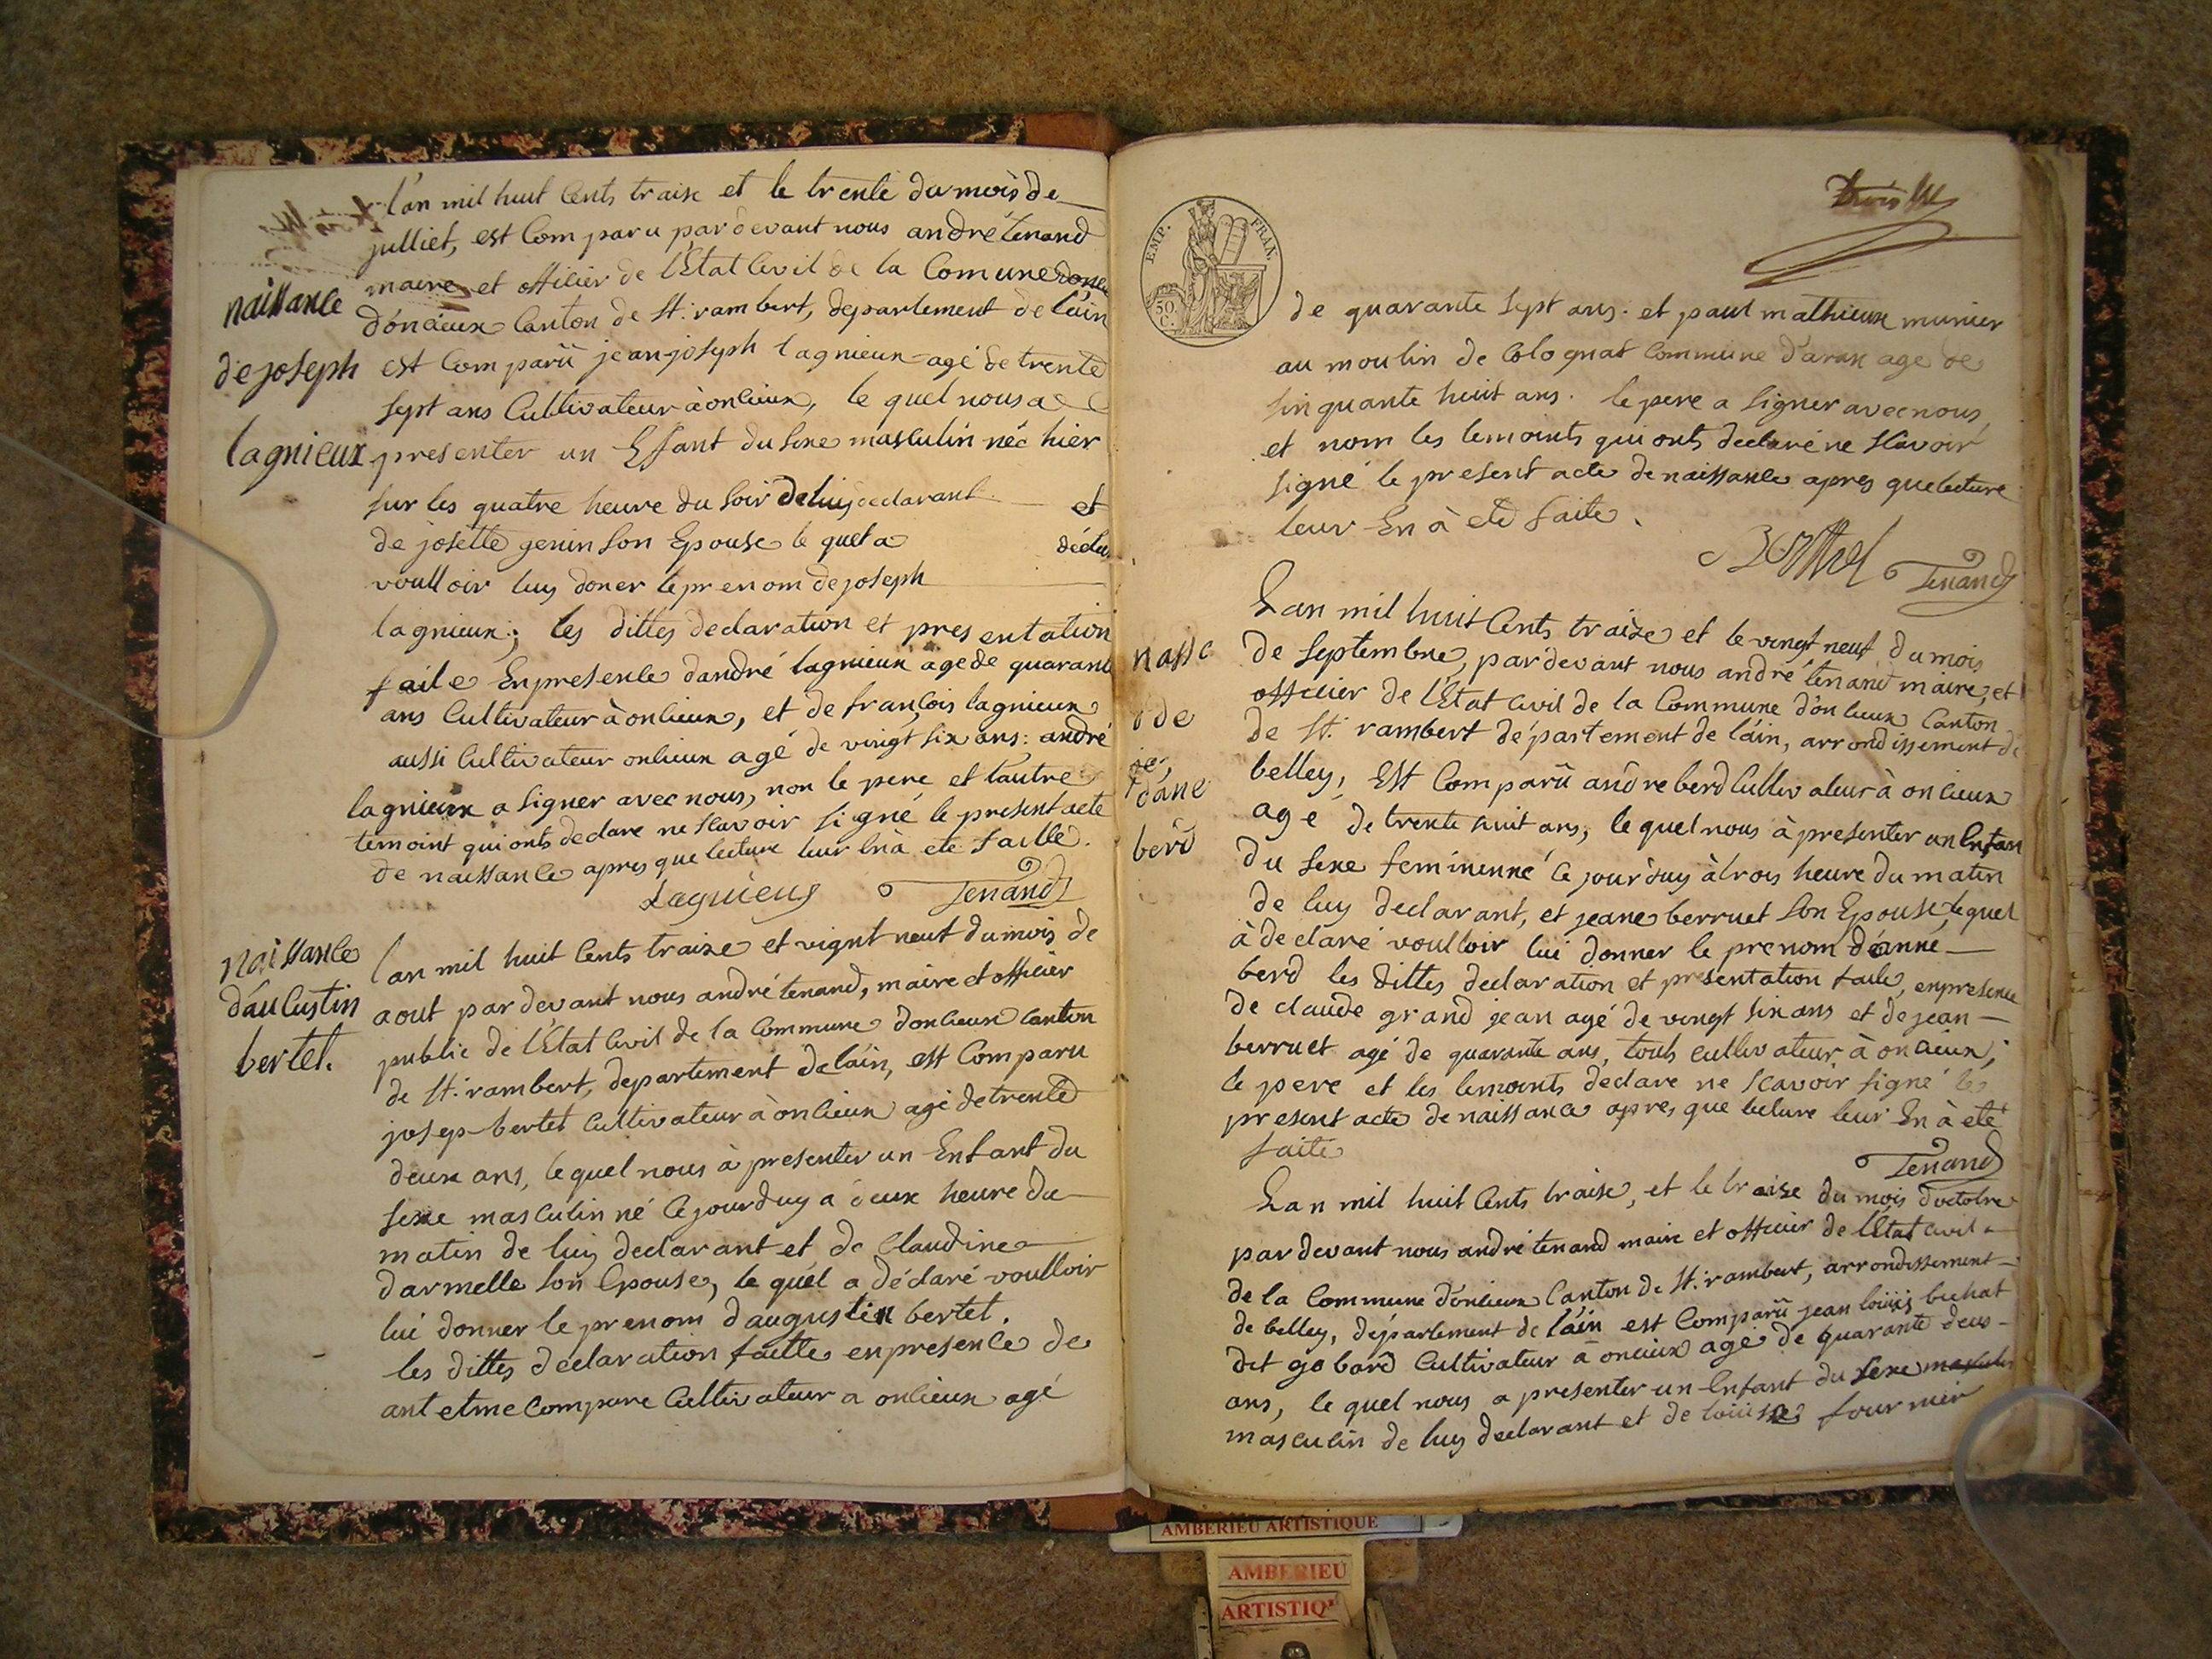 l'an mil huit Cents traise et le trente du mois de
julliet, est Comparu pardevant nous andré tenand
maire et officier de l'Etat Civil de la Comune
d'oncieux Canton de St. rambert, departement de l'ain
naissance
de joseph
lagnieux
est Comparü jean-joseph lagnieux agé de trente
sept ans Cultivateur à oncieux, le quel nous a
presenter un Effant du sexe masculin néé hier
sur les quatre heure du soir de luy declarant et
de josette genin son Epouse le quel a déclaré
voulloir luy doner le prenom de joseph
lagnieux; les dittes declaration et presentation
faite En presence dandré lagnieux age de quarante
ans Cultivateur à oncieux, et de françois lagnieux
aussi Cultivateur oncieux agé de vingt six ans: andré
lagnieux a signer avec nous, non le pere et l'autre
temoint qui onts declare ne scavoir signé le present acte
de naissance apres que lecture leur En à ete faitte.
Lagnieux Tenand
naissance
d'aucustin
bertet.
lan mil huit Cents traize et vignt neuf du mois de
aout par devant nous andré tenand, maire et officier
public de l'Etat Civil de la Commune doncieux Canton
de St. rambert, departement de l'ain, est Comparu
josep bertet Cultivateur à oncieux agé de trente
deux ans, lequel nous à presenter un Enfant du
sexe masculin né Ce jourduy a deux heure du
matin de luy declarant et de Claudine
darmelle son Epouse, le quel a déclaré voulloir
lui donner le prenom d augustin bertet.
les dittes declaration faitte en presence de
antetme Compare Cultivateur a oncieux agé
EMP. FRAN.
50 C.
de quarante sept ans. et paul mathieux munier
au moulin de Colognat Commune d'aran age de
sinquante huit ans. le pere a signer avec nous
et nom les temoints qui onts declaré ne scavoir
signé le present acte de naissance apres que lecture
leur En à eté faite.
Berthet Tenand
nassc
de
jane
berd
Lan mil huit Cents traize et le vingt neuf du mois
de septembre, pardevant nous andré tenand maire, et
officier de l'Etat Civil de la Commune d'oncieux Canton
de St. rambert département de l'ain, arrondissement de
belley, Est Comparü andre berd Cultivateur à oncieux
agé de trente huit ans, le quel nous à presenter un Enfan
du sexe feminenné le jour'duy à trois heure du matin
de luy declarant, et jeane berruet son Epouse, le quel
à declaré voulloir lui donner le prenom déanne
berd les dittes declaration et presentation faite, en presence
de claude grand jean agé de vingt six ans et de jean
berruet agé de quarante ans, touts cultivateur à oncieux;
le pere et les temoints déclare ne scavoir signé le
present acte de naissance apres que lecture leur En à eté
faite
Tenand
Lan mil huit Cents traise, et le traize du mois d'octobre
par devant nous andré tenand maire et officier de l'Etat Civil
de la Commune d'oncieux Canton de St. rambert, arrondissement
de belley, département de l'ain est Comparü jean louiis buhat
dit gobard Cultivateur à oncieux agé de quarante deus
ans, le quel nous a presenter un Enfant du sexe masculin
masculin de luy declarant et de louiise fournier
AMBERIEU ARTISTIQUE
AMBERIEU
ARTISTIQ'